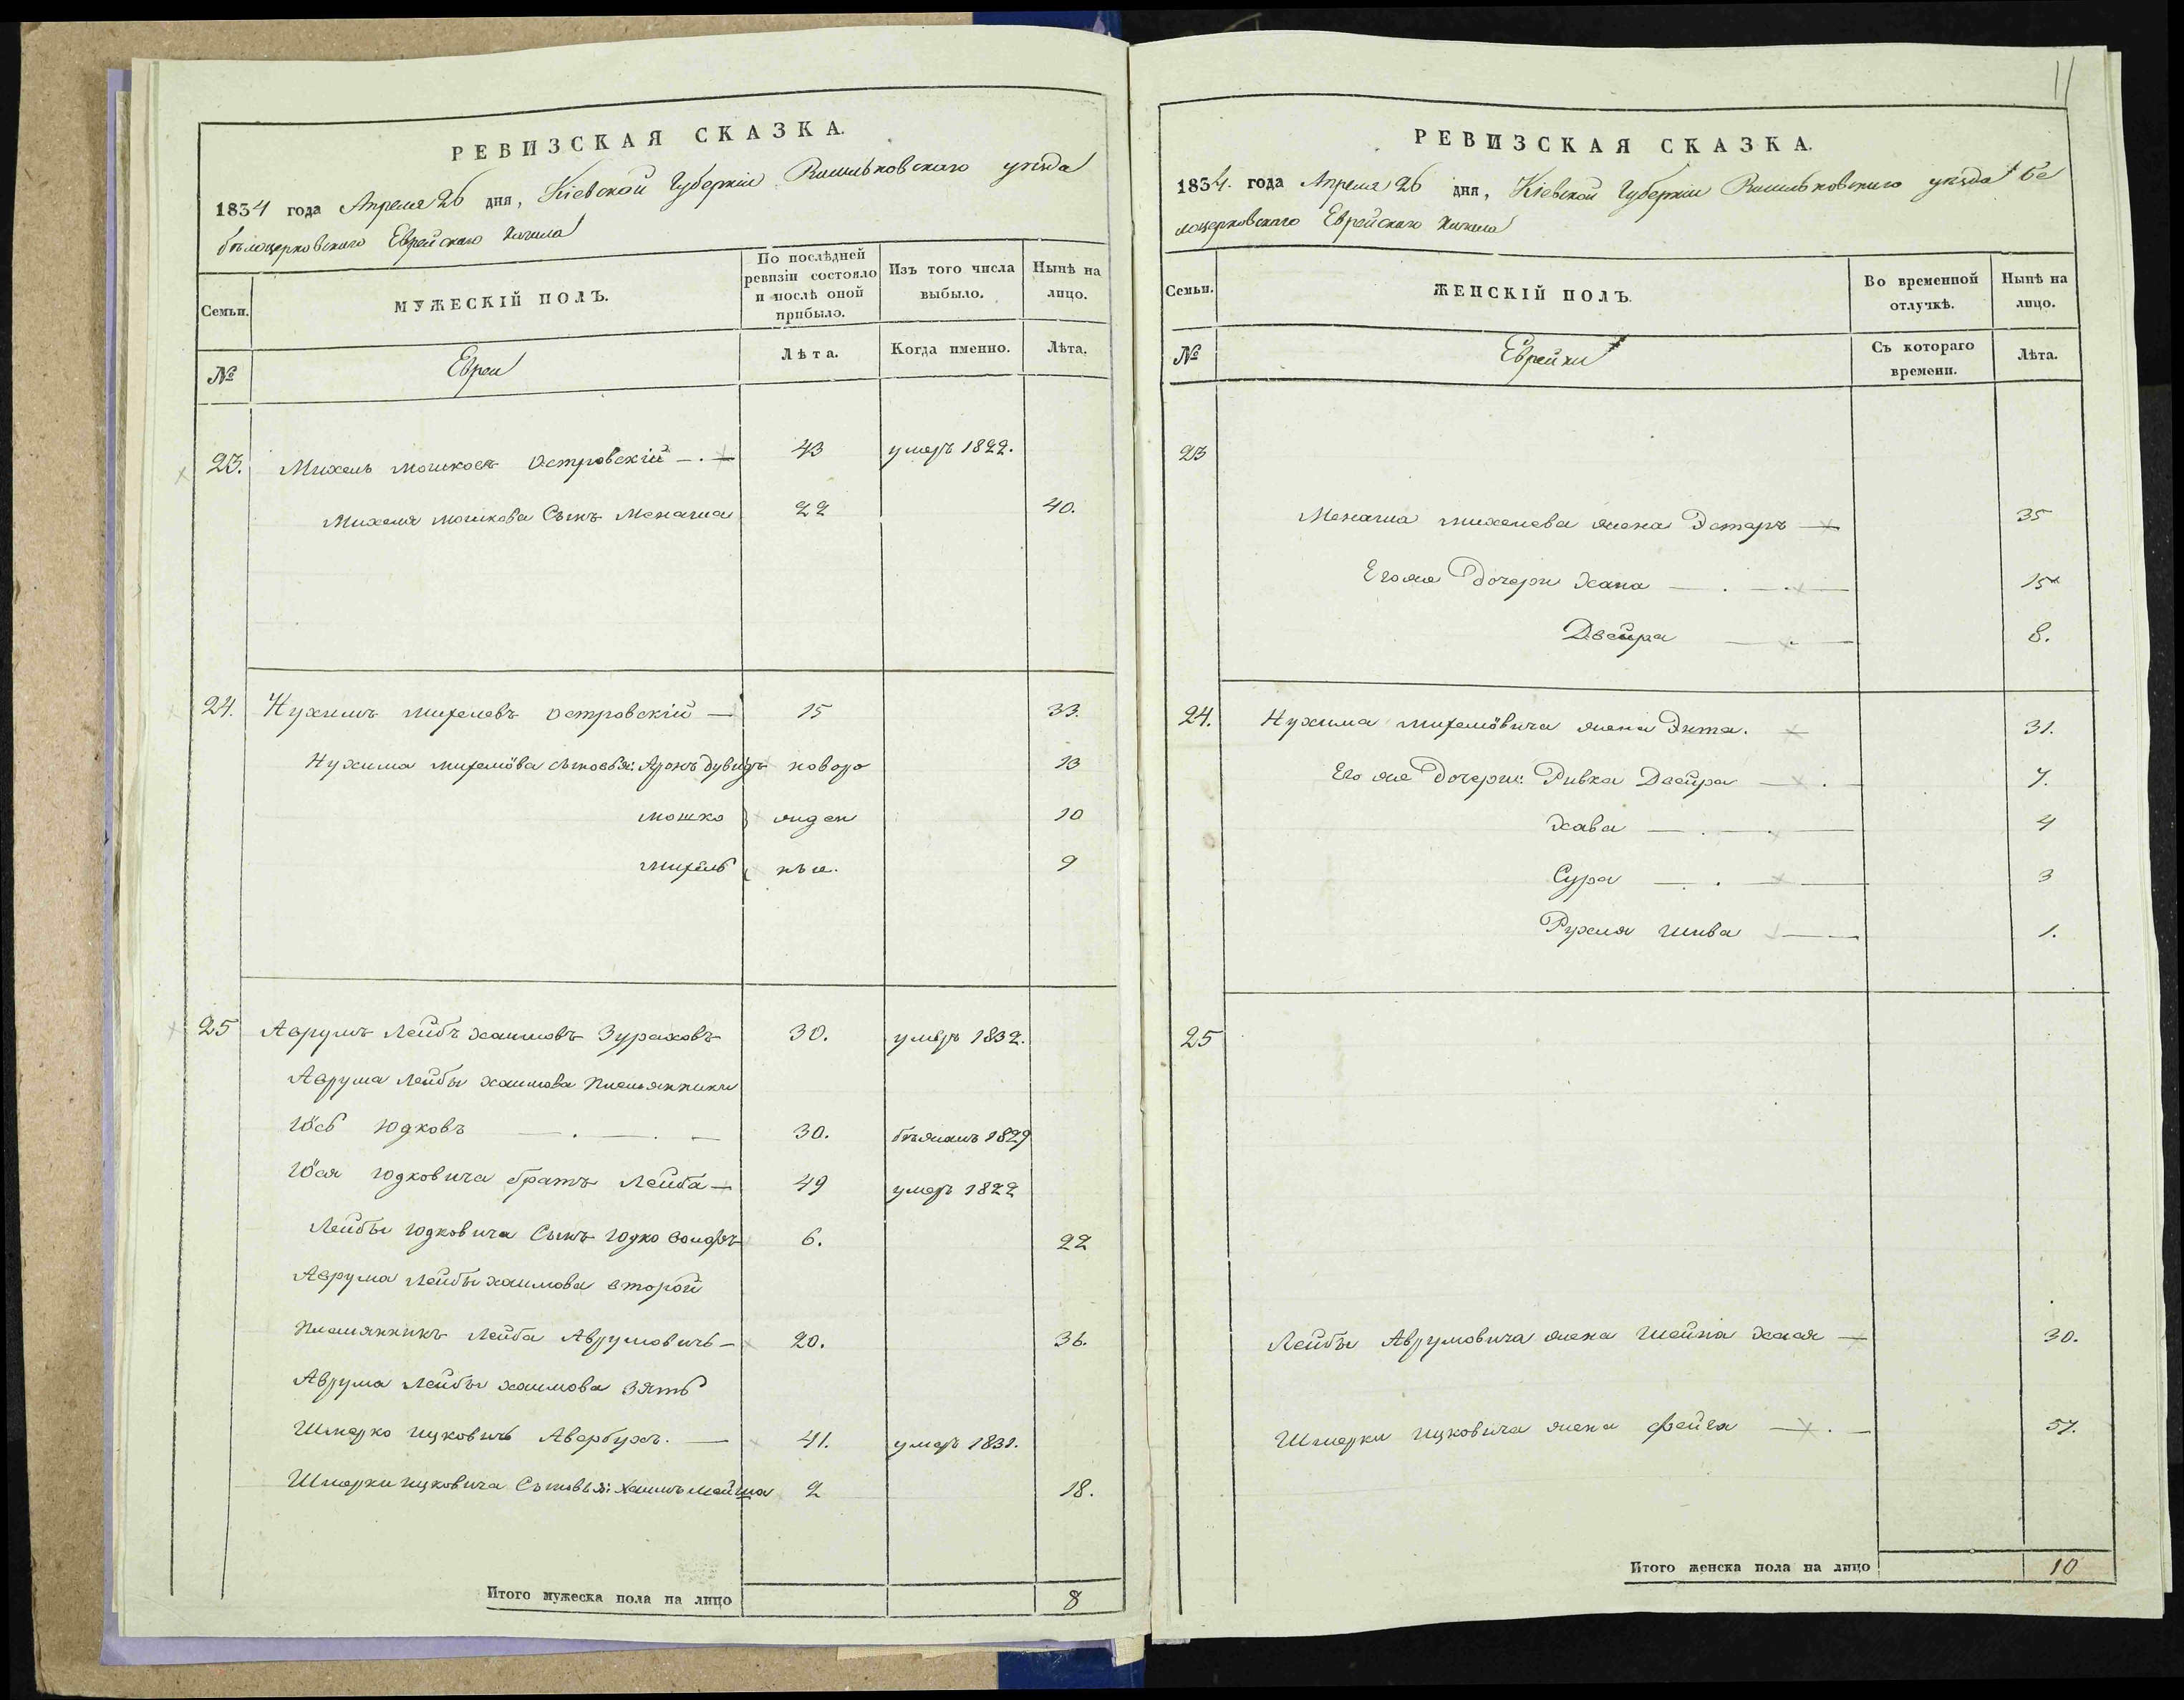 РЕВИЗСКАЯ СКАЗКА.
1834 года Апреля 26 дня, Кіевской Губерніи Васильковскаго уезда
бѣлоцерковскаго Еврейскаго Кагала
Семьи.
МУЖЕСКІЙ ПОЛЪ.
По послѣдней ревизіи состояло и послѣ оной прибыло.
Изъ того числа выбыло.
Нынѣ на лицо.
№
Евреи
Лѣта.
Когда именно.
Лѣта.
23. Михель мошковъ Островскій 43 умеръ 1822.
Михеля мошкова Сынъ Менаша 22 40.
24. Нухимъ михелевъ островскій 15 33.
Нухима михелёва сыновья: Аронъ дувидъ новоро 13
мошко жден 10
михель ные. 9
25 Аврумъ Лейбъ хаимовъ Зураховъ 30. умеръ 1832.
Аврума Лейбы хаимова племянники
Іось Юдковъ 30. бѣжалъ 1829
Іося Юдковича братъ Лейба 49 умеръ 1822
Лейбы Юдковича Сынъ Юдко 6. 22
Аврума Лейбы хаимова второй
племянникъ Лейба Аврумовичь 20. 36.
Аврума Лейбы хаимова зять
Шмерко ицковичь Авербухъ. 41. умеръ 1831.
Шмерки ицковича Сыновья: хаимъ 2 18.
Итого мужеска пола на лицо 8
11
РЕВИЗСКАЯ СКАЗКА.
1834. года Апреля 26 дня, Кіевской Губерніи Васильковскаго уезда бе
лоцерковскаго Еврейскаго Кагала
Семьи.
ЖЕНСКІЙ ПОЛЪ.
Во временной отлучкѣ.
Нынѣ на лицо.
№
Еврейки
Съ котораго времени.
Лѣта.
23
Менаша михелева жена Эстеръ 35
Его же Дочери Хана 15
Двейра 8.
24. Нухима михелёвича жена Энта. 31.
Его же Дочери: Ривка Двейра 7.
Хава 4
Сура 3
Рухля Шива 1.
25
Лейбы Аврумовича жена Шейна Хая 30.
Шмерки ицковича жена фейга 57.
Итого женска пола на лицо 10